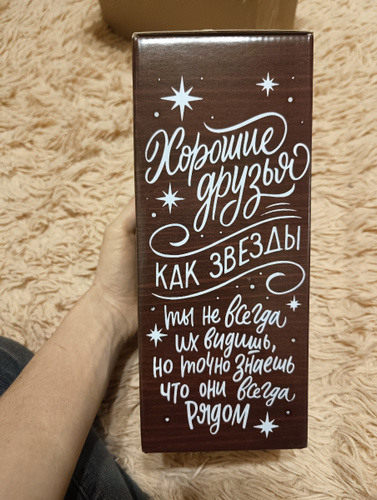 Хорошие
друзья
КАК ЗВЕЗДЫ
ты не всегда
их видишь,
но точно знаешь
что они всегда
рядом